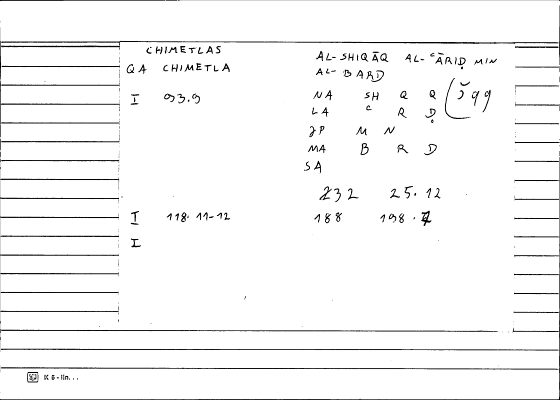 CHIMETLAS
QA CHIMETLA
I 93.9
AL-SHIQĀQ AL-ᶜĀRIḌ MIN
AL-BARD
NA SH Q Q
LA ᶜ R Ḍ
JP M N
MA B R D
SA
232 25.12
I 118.11-12 188 198.
I
IK 6 - lin...